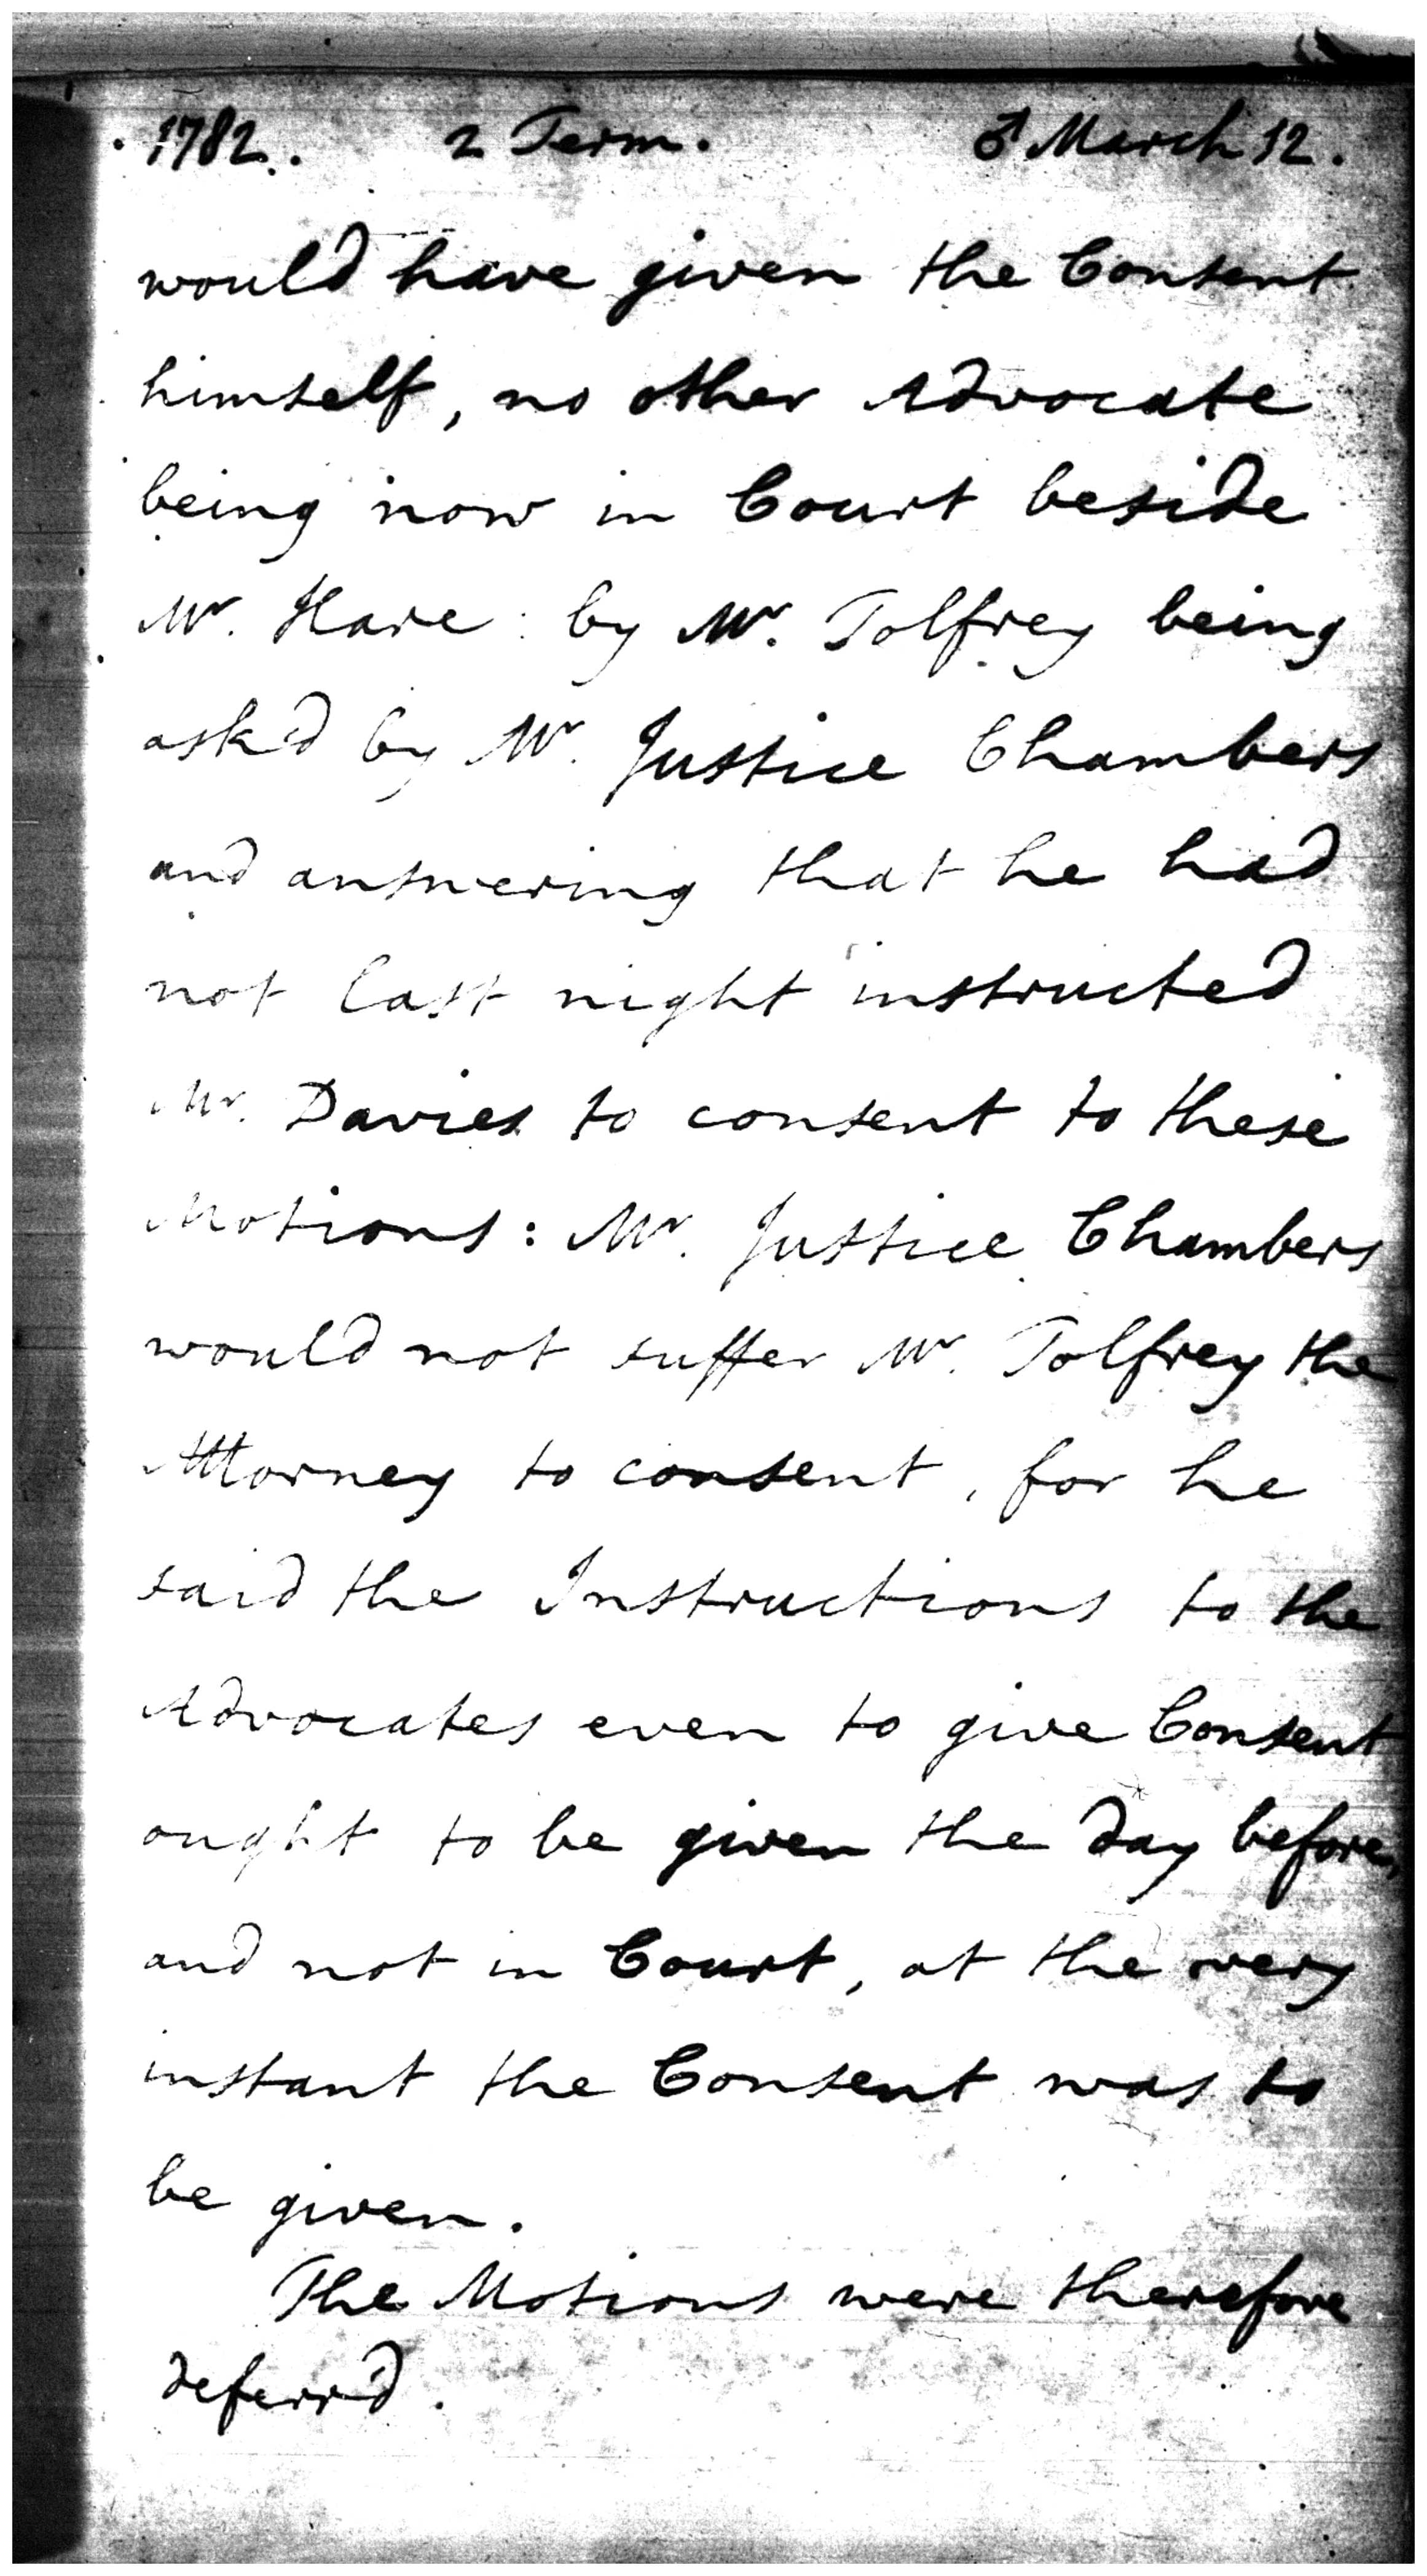 1782. 2 Term. ♂ March 12.
would have given the Consent
himself, no other Advocate
being now in Court beside
Mr. Hare: by Mr. Tolfrey being
ask'd by Mr. Justice Chambers
and answering that he had
not last night instructed
Mr. Davies to consent to these
Motions: Mr. Justice Chambers
would not suffer Mr. Tolfrey the
Attorney to consent, for he
said the Instructions to the
Advocates even to give Consent
ought to be given the day before,
and not in Court, at the very
instant the Consent was to
be given.
The Motions were therefore
deferr'd.